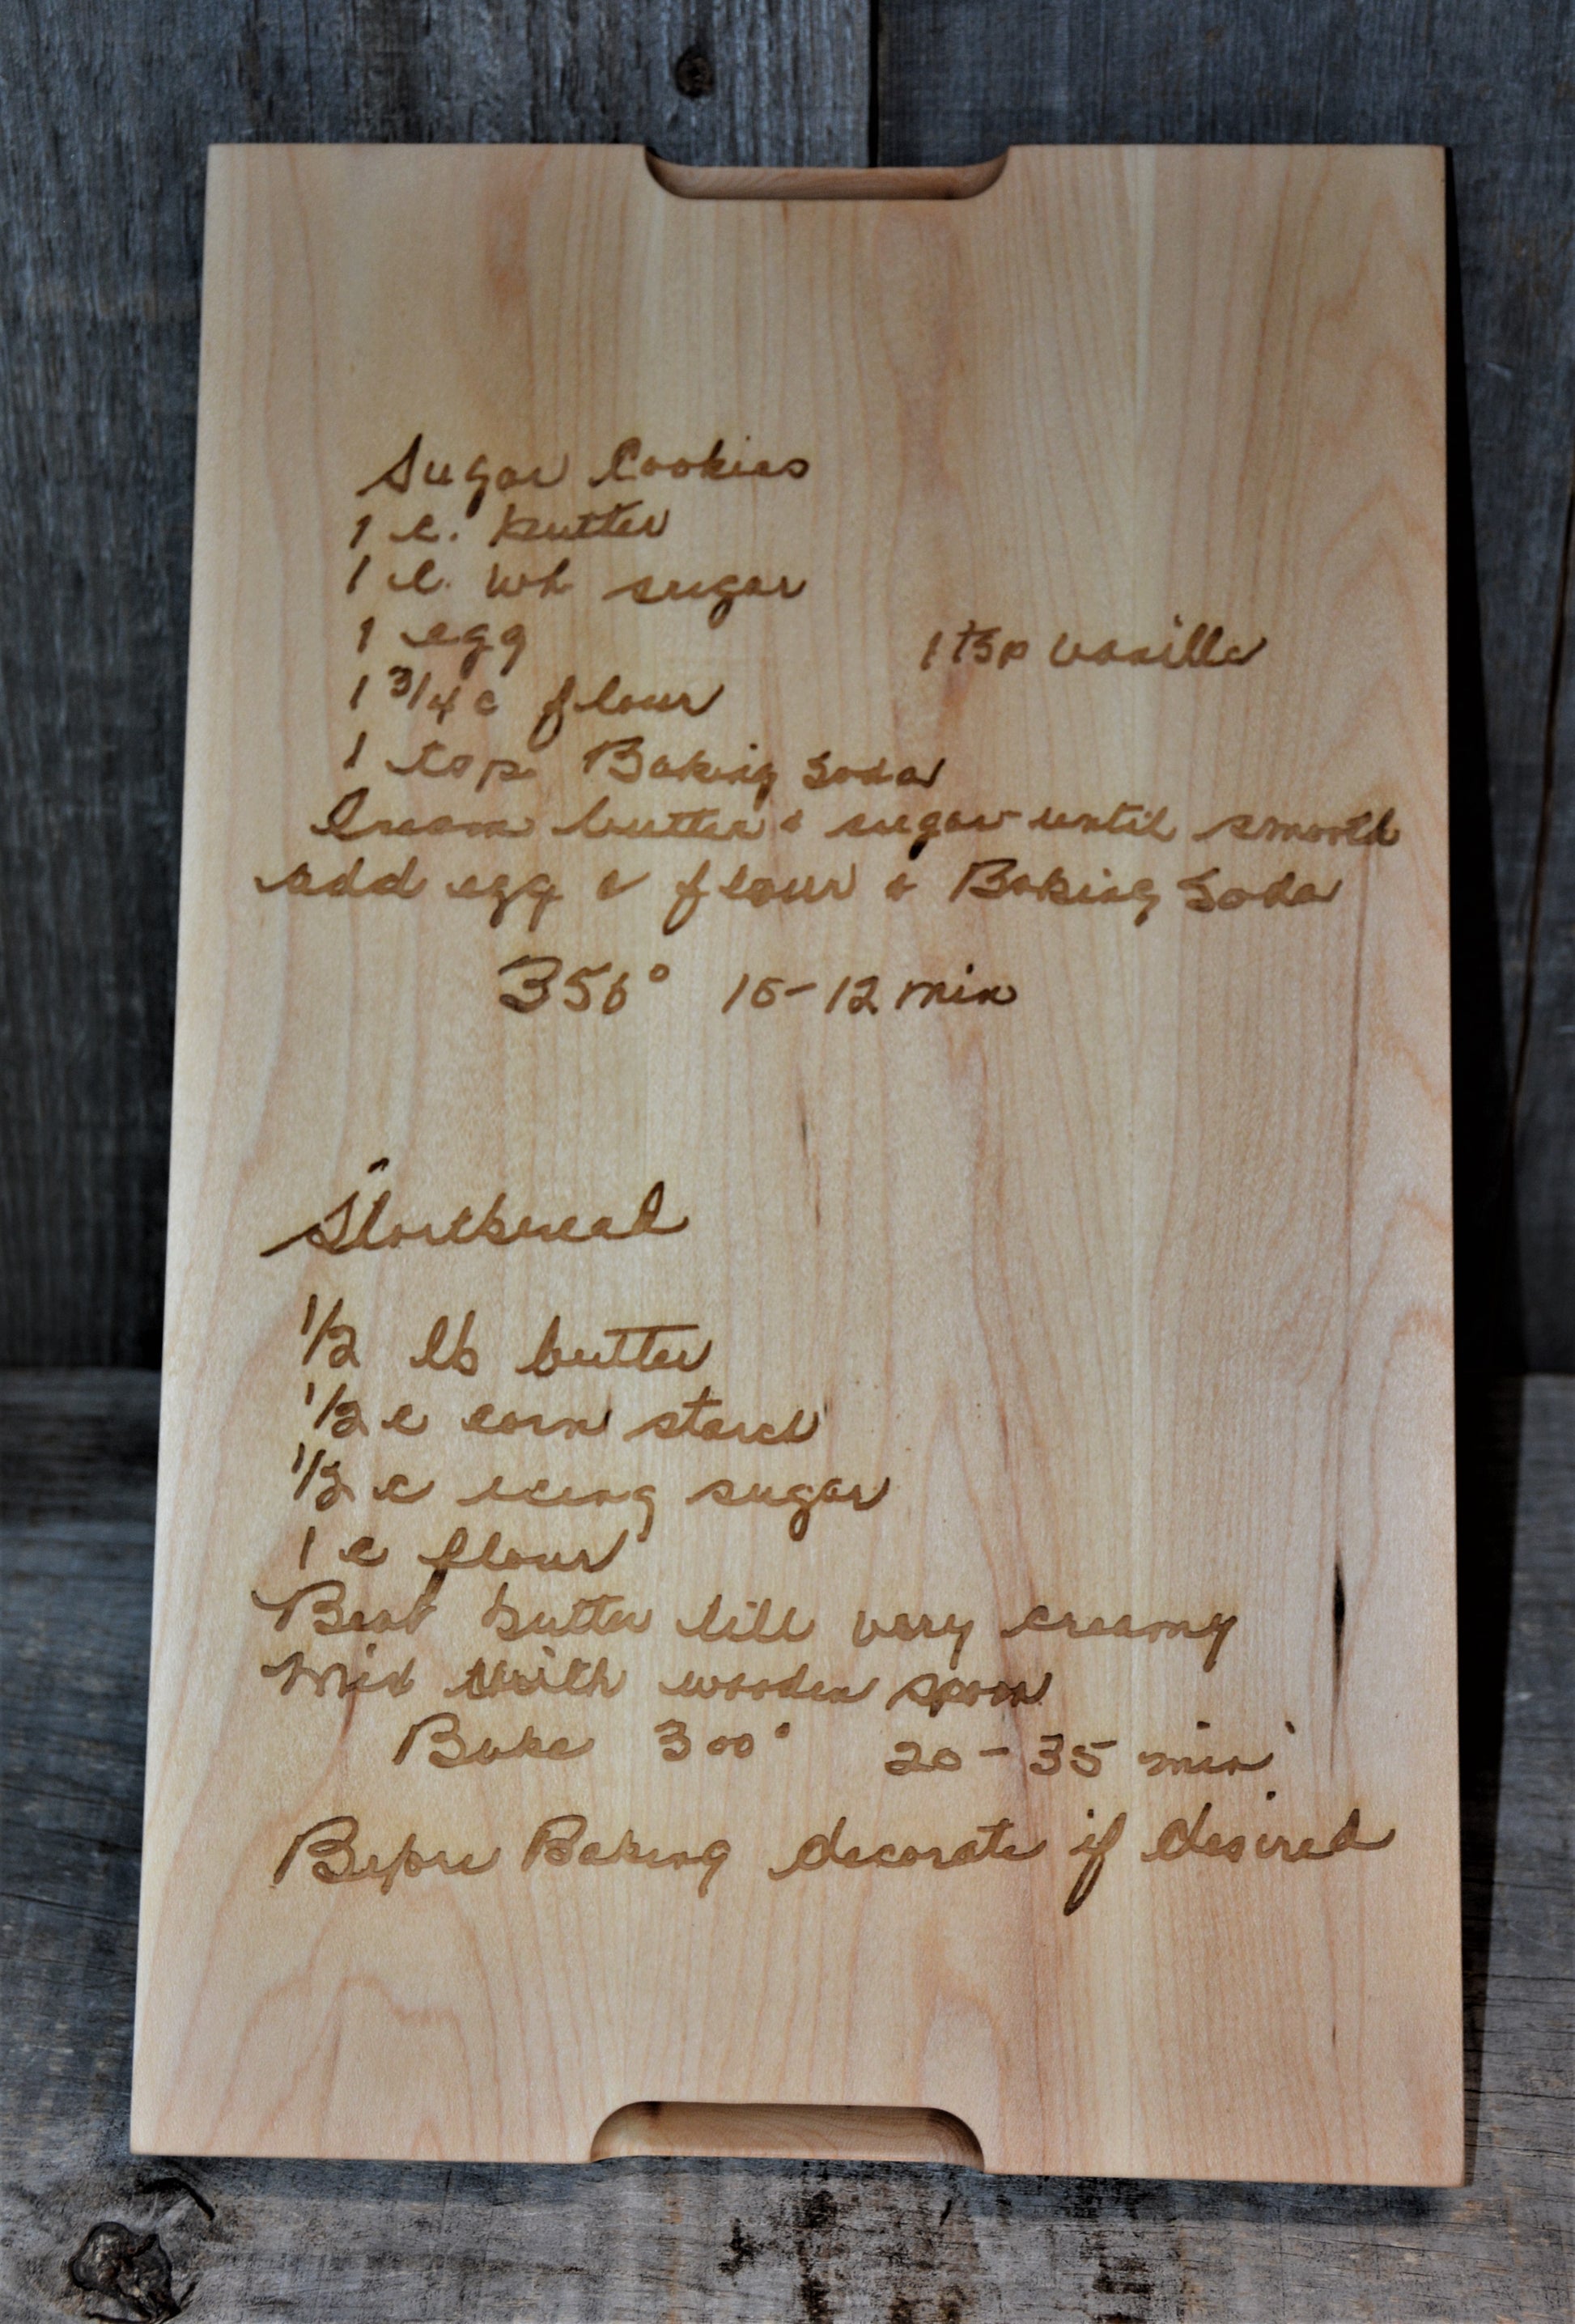 Sugar Cookies
1 c. butter
1 c. wh sugar
1 egg 1 tsp vanilla
1 3/4 c flour
1 tsp. Baking Soda
Cream butter & sugar until smooth
add egg & flour & Baking Soda
350° 10-12 min
Shortbread
1/2 lb butter
1/2 c corn starch
1/2 c icing sugar
1 c flour
Beat butter till very creamy
Mix with wooden spoon
Bake 300° 20-35 min
Before Baking decorate if desired